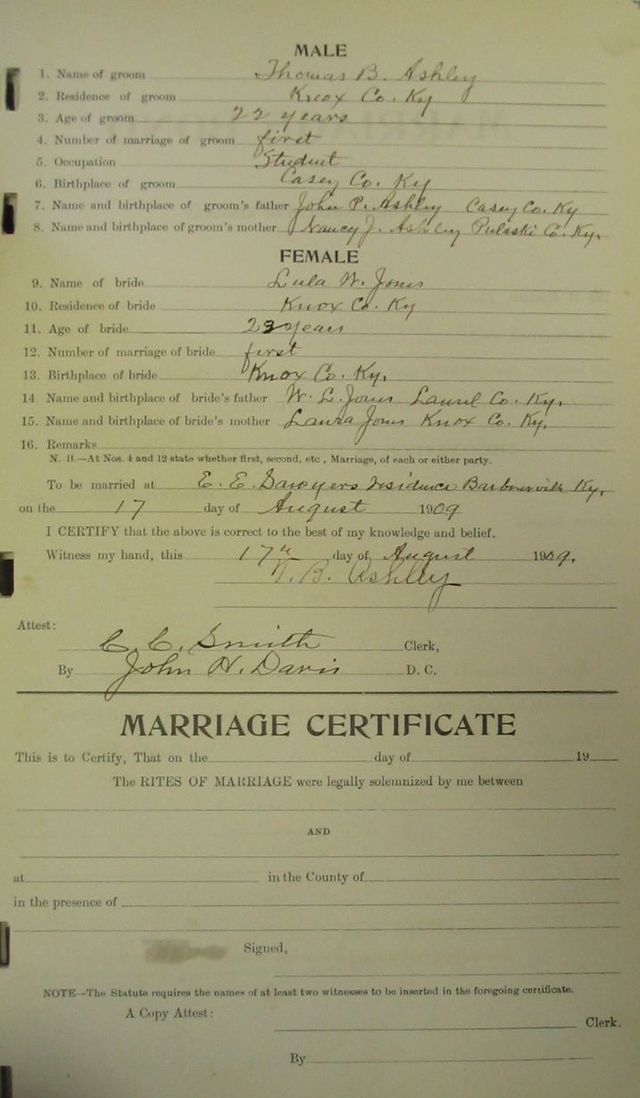 MALE
1. Name of groom Thomas B. Ashley
2. Residence of groom Knox Co. Ky
3. Age of groom 22 years
4. Number of marriage of groom first
5. Occupation Student
6. Birthplace of groom Casey Co. Ky
7. Name and birthplace of groom's father John P. Ashley Casey Co. Ky
8. Name and birthplace of groom's mother Nancy J. Ashley Pulaski Co. Ky.
FEMALE
9. Name of bride Lula W. Jones
10. Residence of bride Knox Co. Ky
11. Age of bride 23 years
12. Number of marriage of bride first
13. Birthplace of bride Knox Co. Ky.
14. Name and birthplace of bride's father W. L. Jones Laurel Co. Ky.
15. Name and birthplace of bride's mother Laura Jones Knox Co. Ky.
16. Remarks
N. B.—At Nos. 4 and 12 state whether first, second, etc., Marriage, of each or either party.
To be married at E. E. Sawyers residence Barbourville Ky.
on the 17 day of August 1909
I CERTIFY that the above is correct to the best of my knowledge and belief.
Witness my hand, this 17th day of August 1909.
T. B. Ashley
Attest:
C. C. Smith Clerk,
By John H. Davis D. C.
MARRIAGE CERTIFICATE
This is to Certify, That on the day of 19
The RITES OF MARRIAGE were legally solemnized by me between
AND
at in the County of
in the presence of
Signed,
NOTE—The Statute requires the names of at least two witnesses to be inserted in the foregoing certificate.
A Copy Attest:
Clerk.
By